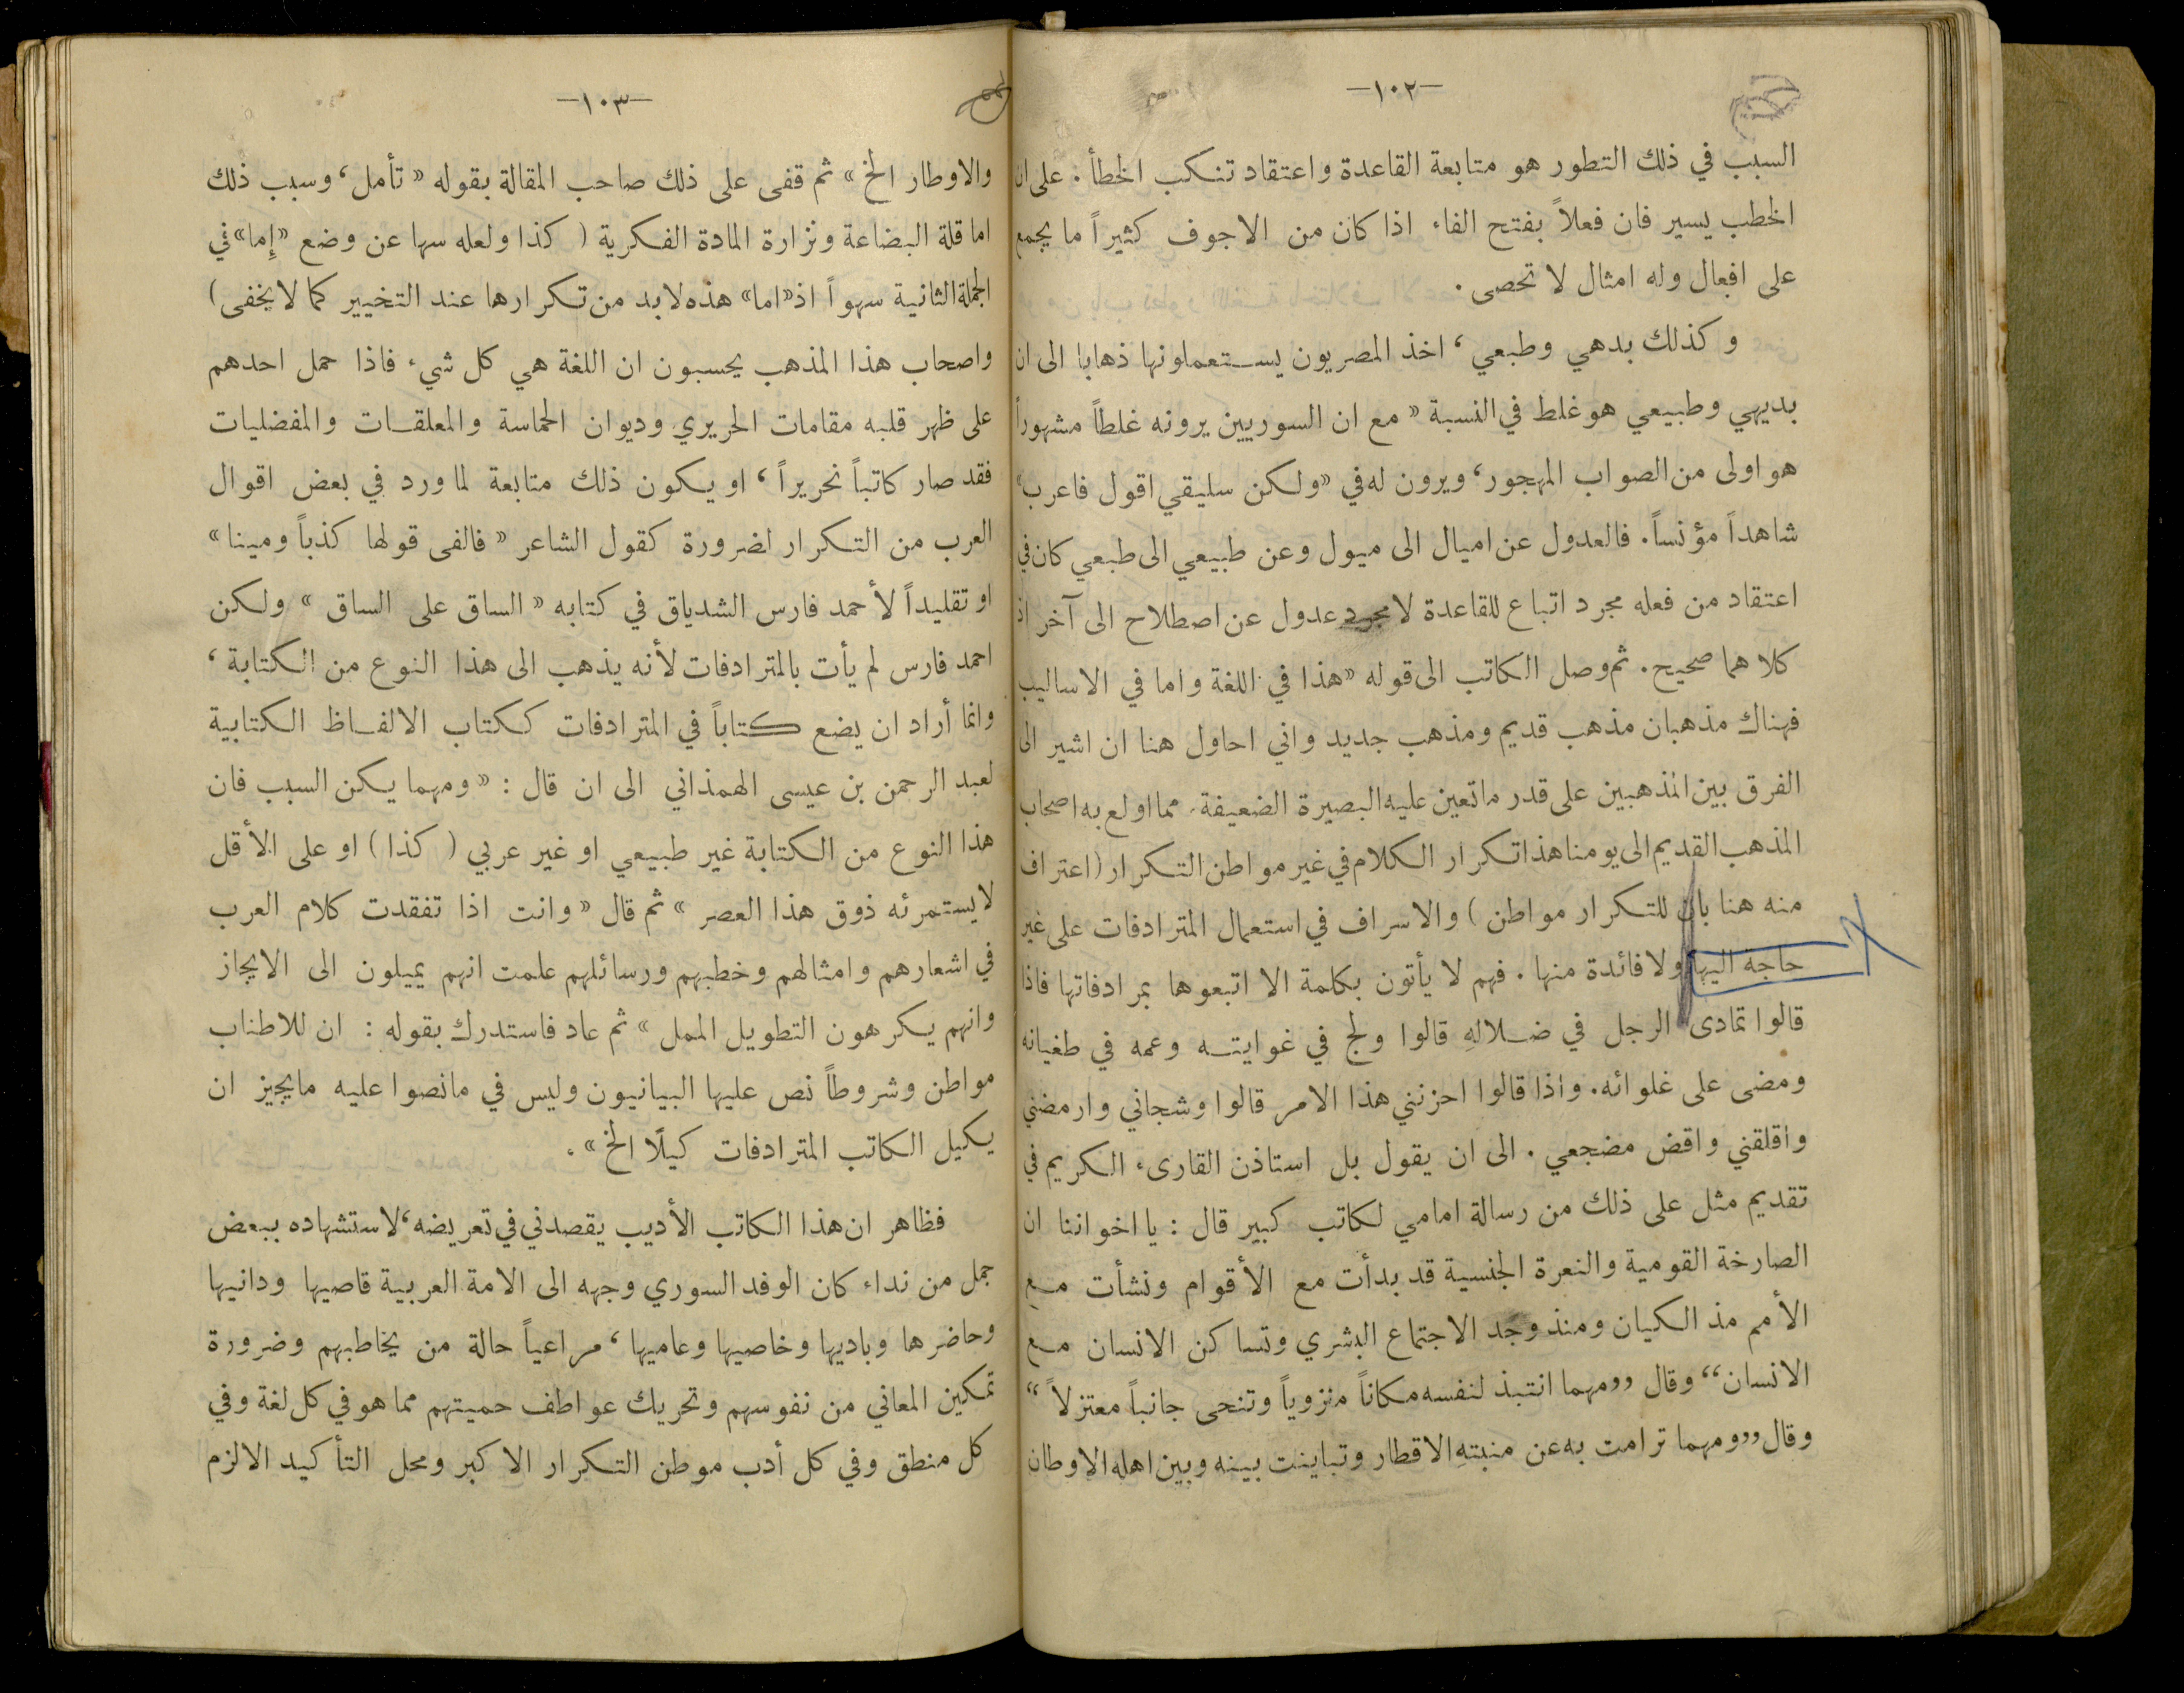 —١٠٢—
السبب في ذلك التطور هو متابعة القاعدة واعتقاد تنكب الخطأ . على ان
الخطب يسير فان فعلاً بفتح الفاء اذا كان من الاجوف كثيراً ما يجمع
على افعال وله امثال لا تحصى .
وكذلك بدهي وطبعي ، اخذ المصريون يستعملونها ذهابا الى ان
بديهي وطبيعي هو غلط في النسبة « مع ان السوريين يرونه غلطاً مشهوراً
هو اولى من الصواب المهجور ، ويرون له في « ولكن سليقي اقول فاعرب »
شاهداً مؤنساً . فالعدول عن اميال الى ميول وعن طبيعي الى طبعي كان في
اعتقاد من فعله مجرد اتباع للقاعدة لا مجرد عدول عن اصطلاح الى آخر اذ
كلاهما صحيح . ثم وصل الكاتب الى قوله « هذا في اللغة واما في الاساليب
فهناك مذهبان مذهب قديم ومذهب جديد واني احاول هنا ان اشير الى
الفرق بين المذهبين على قدر ما تعين عليه البصيرة الضعيفة . مما اولع به اصحاب
المذهب القديم الى يومنا هذا تكرار الكلام في غير مواطن التكرار ( اعتراف
منه هنا بان للتكرار مواطن ) والاسراف في استعمال المترادفات على غير
حاجة اليها ولا فائدة منها . فهم لا يأتون بكلمة الا اتبعوها بمرادفاتها فاذا
قالوا تمادى الرجل في ضلالهِ قالوا ولج في غوايته وعمه في طغيانه
ومضى على غلوائه . واذا قالوا احزنني هذا الامر قالوا وشجاني وارمضني
واقلقني واقض مضجعي . الى ان يقول بل استاذن القارىء الكريم في
تقديم مثل على ذلك من رسالة امامي لكاتب كبير قال : يا اخواننا ان
الصارخة القومية والنعرة الجنسية قد بدأت مع الأقوام ونشأت مع
الأمم مذ الكيان ومنذ وجد الاجتماع البشري وتساكن الانسان مع
الانسان “ وقال „ ومهما انتبذ لنفسه مكاناً منزوياً وتنحى جانباً معتزلاً “
وقال „ ومهما ترامت به عن منبتهِ الاقطار وتباينت بينه وبين اهله الاوطان
—١٠٣—
والاوطار الخ » ثم قفى على ذلك صاحب المقالة بقوله « تأمل ، وسبب ذلك
اما قلة البضاعة ونزارة المادة الفكرية ( كذا ولعله سها عن وضع « إِما » في
الجملة الثانية سهواً اذ « اما » هذه لا بد من تكرارها عند التخيير كما لا يخفى )
واصحاب هذا المذهب يحسبون ان اللغة هي كل شيء فاذا حمل احدهم
على ظهر قلبه مقامات الحريري وديوان الحماسة والمعلقات والمفضليات
فقد صار كاتباً نحريراً ، او يكون ذلك متابعة لما ورد في بعض اقوال
العرب من التكرار لضرورة كقول الشاعر « فالفى قولها كذباً ومينا »
او تقليداً لأحمد فارس الشدياق في كتابه « الساق على الساق » ولكن
احمد فارس لم يأت بالمترادفات لأنه يذهب الى هذا النوع من الكتابة ،
وانما أراد ان يضع كتاباً في المترادفات ككتاب الالفاظ الكتابية
لعبد الرحمن بن عيسى الهمذاني الى ان قال : « ومهما يكن السبب فان
هذا النوع من الكتابة غير طبيعي او غير عربي ( كذا ) او على الأقل
لا يستمرئه ذوق هذا العصر » ثم قال « وانت اذا تفقدت كلام العرب
في اشعارهم وامثالهم وخطبهم ورسائلهم علمت انهم يميلون الى الايجاز
وانهم يكرهون التطويل الممل » ثم عاد فاستدرك بقوله : ان للاطناب
مواطن وشروطاً نص عليها البيانيون وليس في ما نصوا عليه ما يجيز ان
يكيل الكاتب المترادفات كيلًا الخ » .
فظاهر ان هذا الكاتب الأديب يقصدني في تعريضه ، لاستشهاده ببعض
جمل من نداء كان الوفد السوري وجهه الى الامة العربية قاصيها ودانيها
وحاضرها وباديها وخاصيها وعاميها ، مراعياً حالة من يخاطبهم وضرورة
تمكين المعاني من نفوسهم وتحريك عواطف حميتهم مما هو في كل لغة وفي
كل منطق وفي كل أدب موطن التكرار الاكبر ومحل التأكيد الالزم